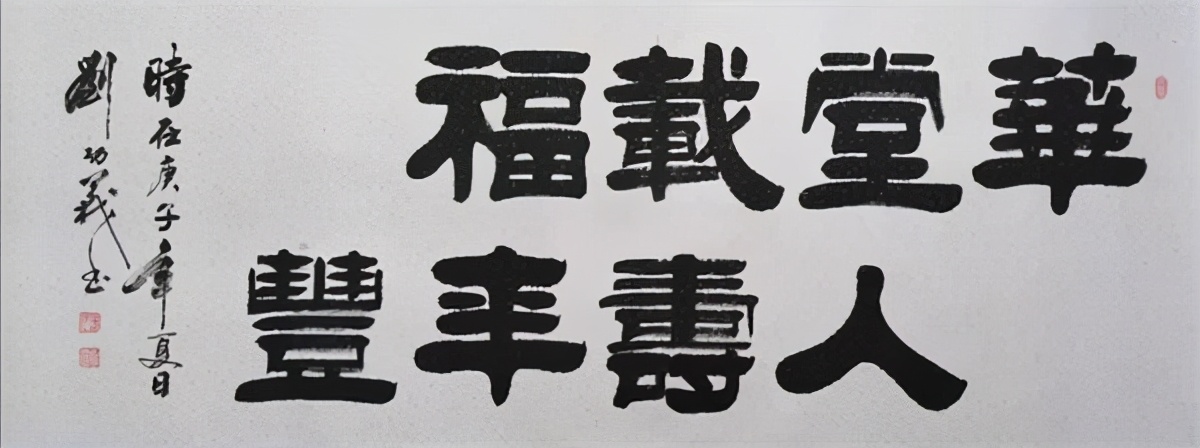 華堂載福
人壽年豐
時在庚子年夏日
劉功義书